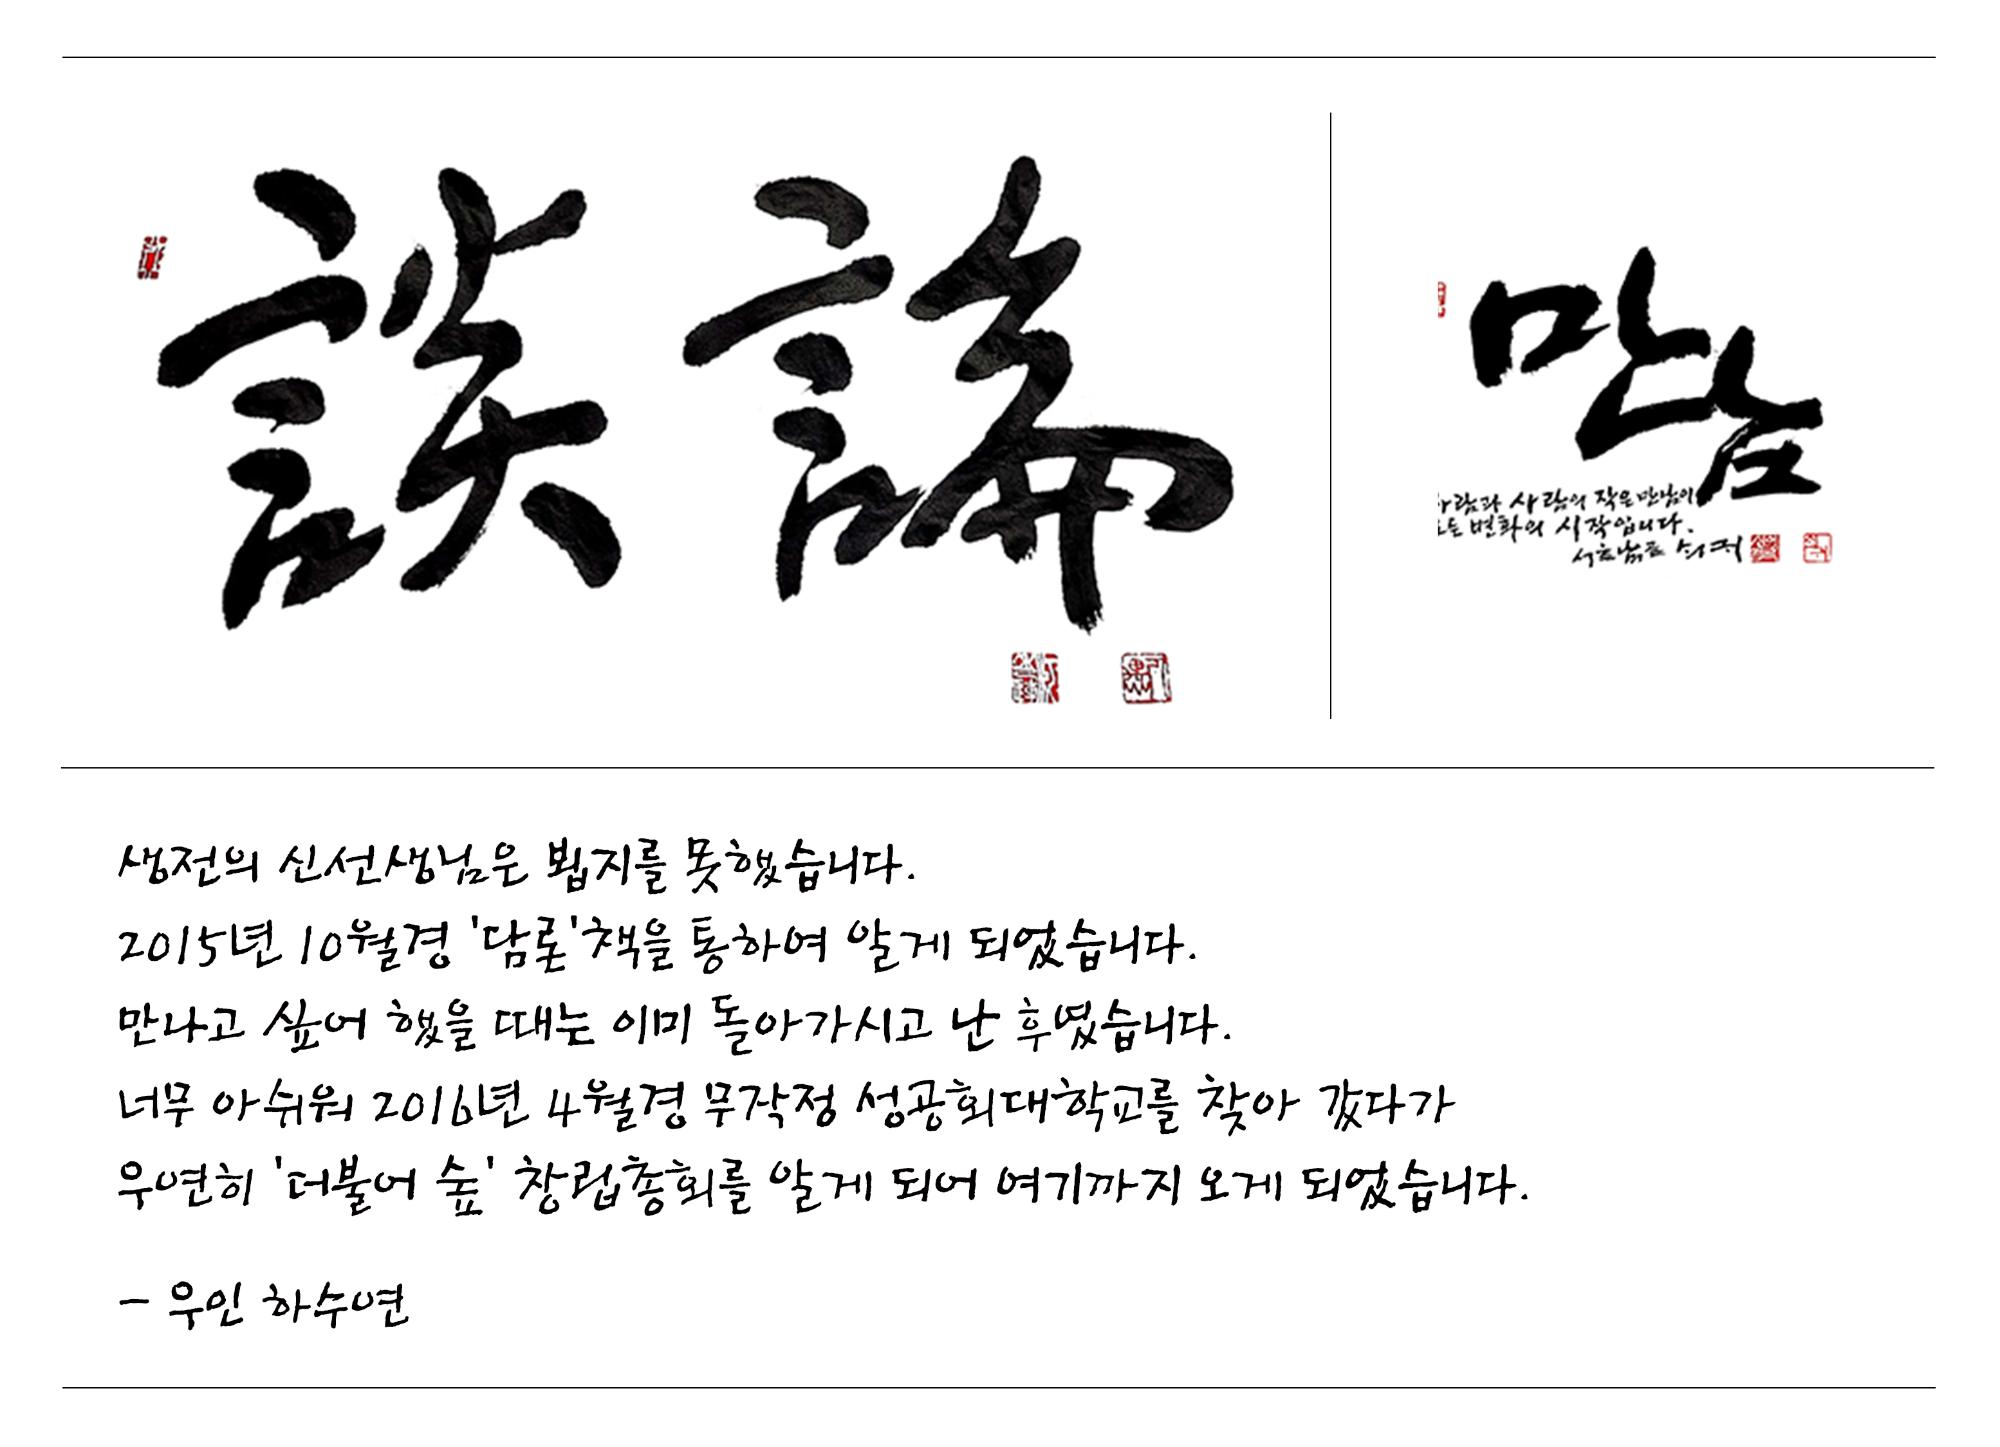 談論
만남
사람과 사람의 작은 만남이
모든 변화의 시작입니다.
생전의 신선생님은 뵙지를 못했습니다.
2015년 10월경 '담론'책을 통하여 알게 되었습니다.
만나고 싶어 했을 때는 이미 돌아가시고 난 후였습니다.
너무 아쉬워 2016년 4월경 무작정 성공회대학교를 찾아 갔다가
우연히 '더불어 숲' 창립총회를 알게 되어 여기까지 오게 되었습니다.
- 우인 하수연